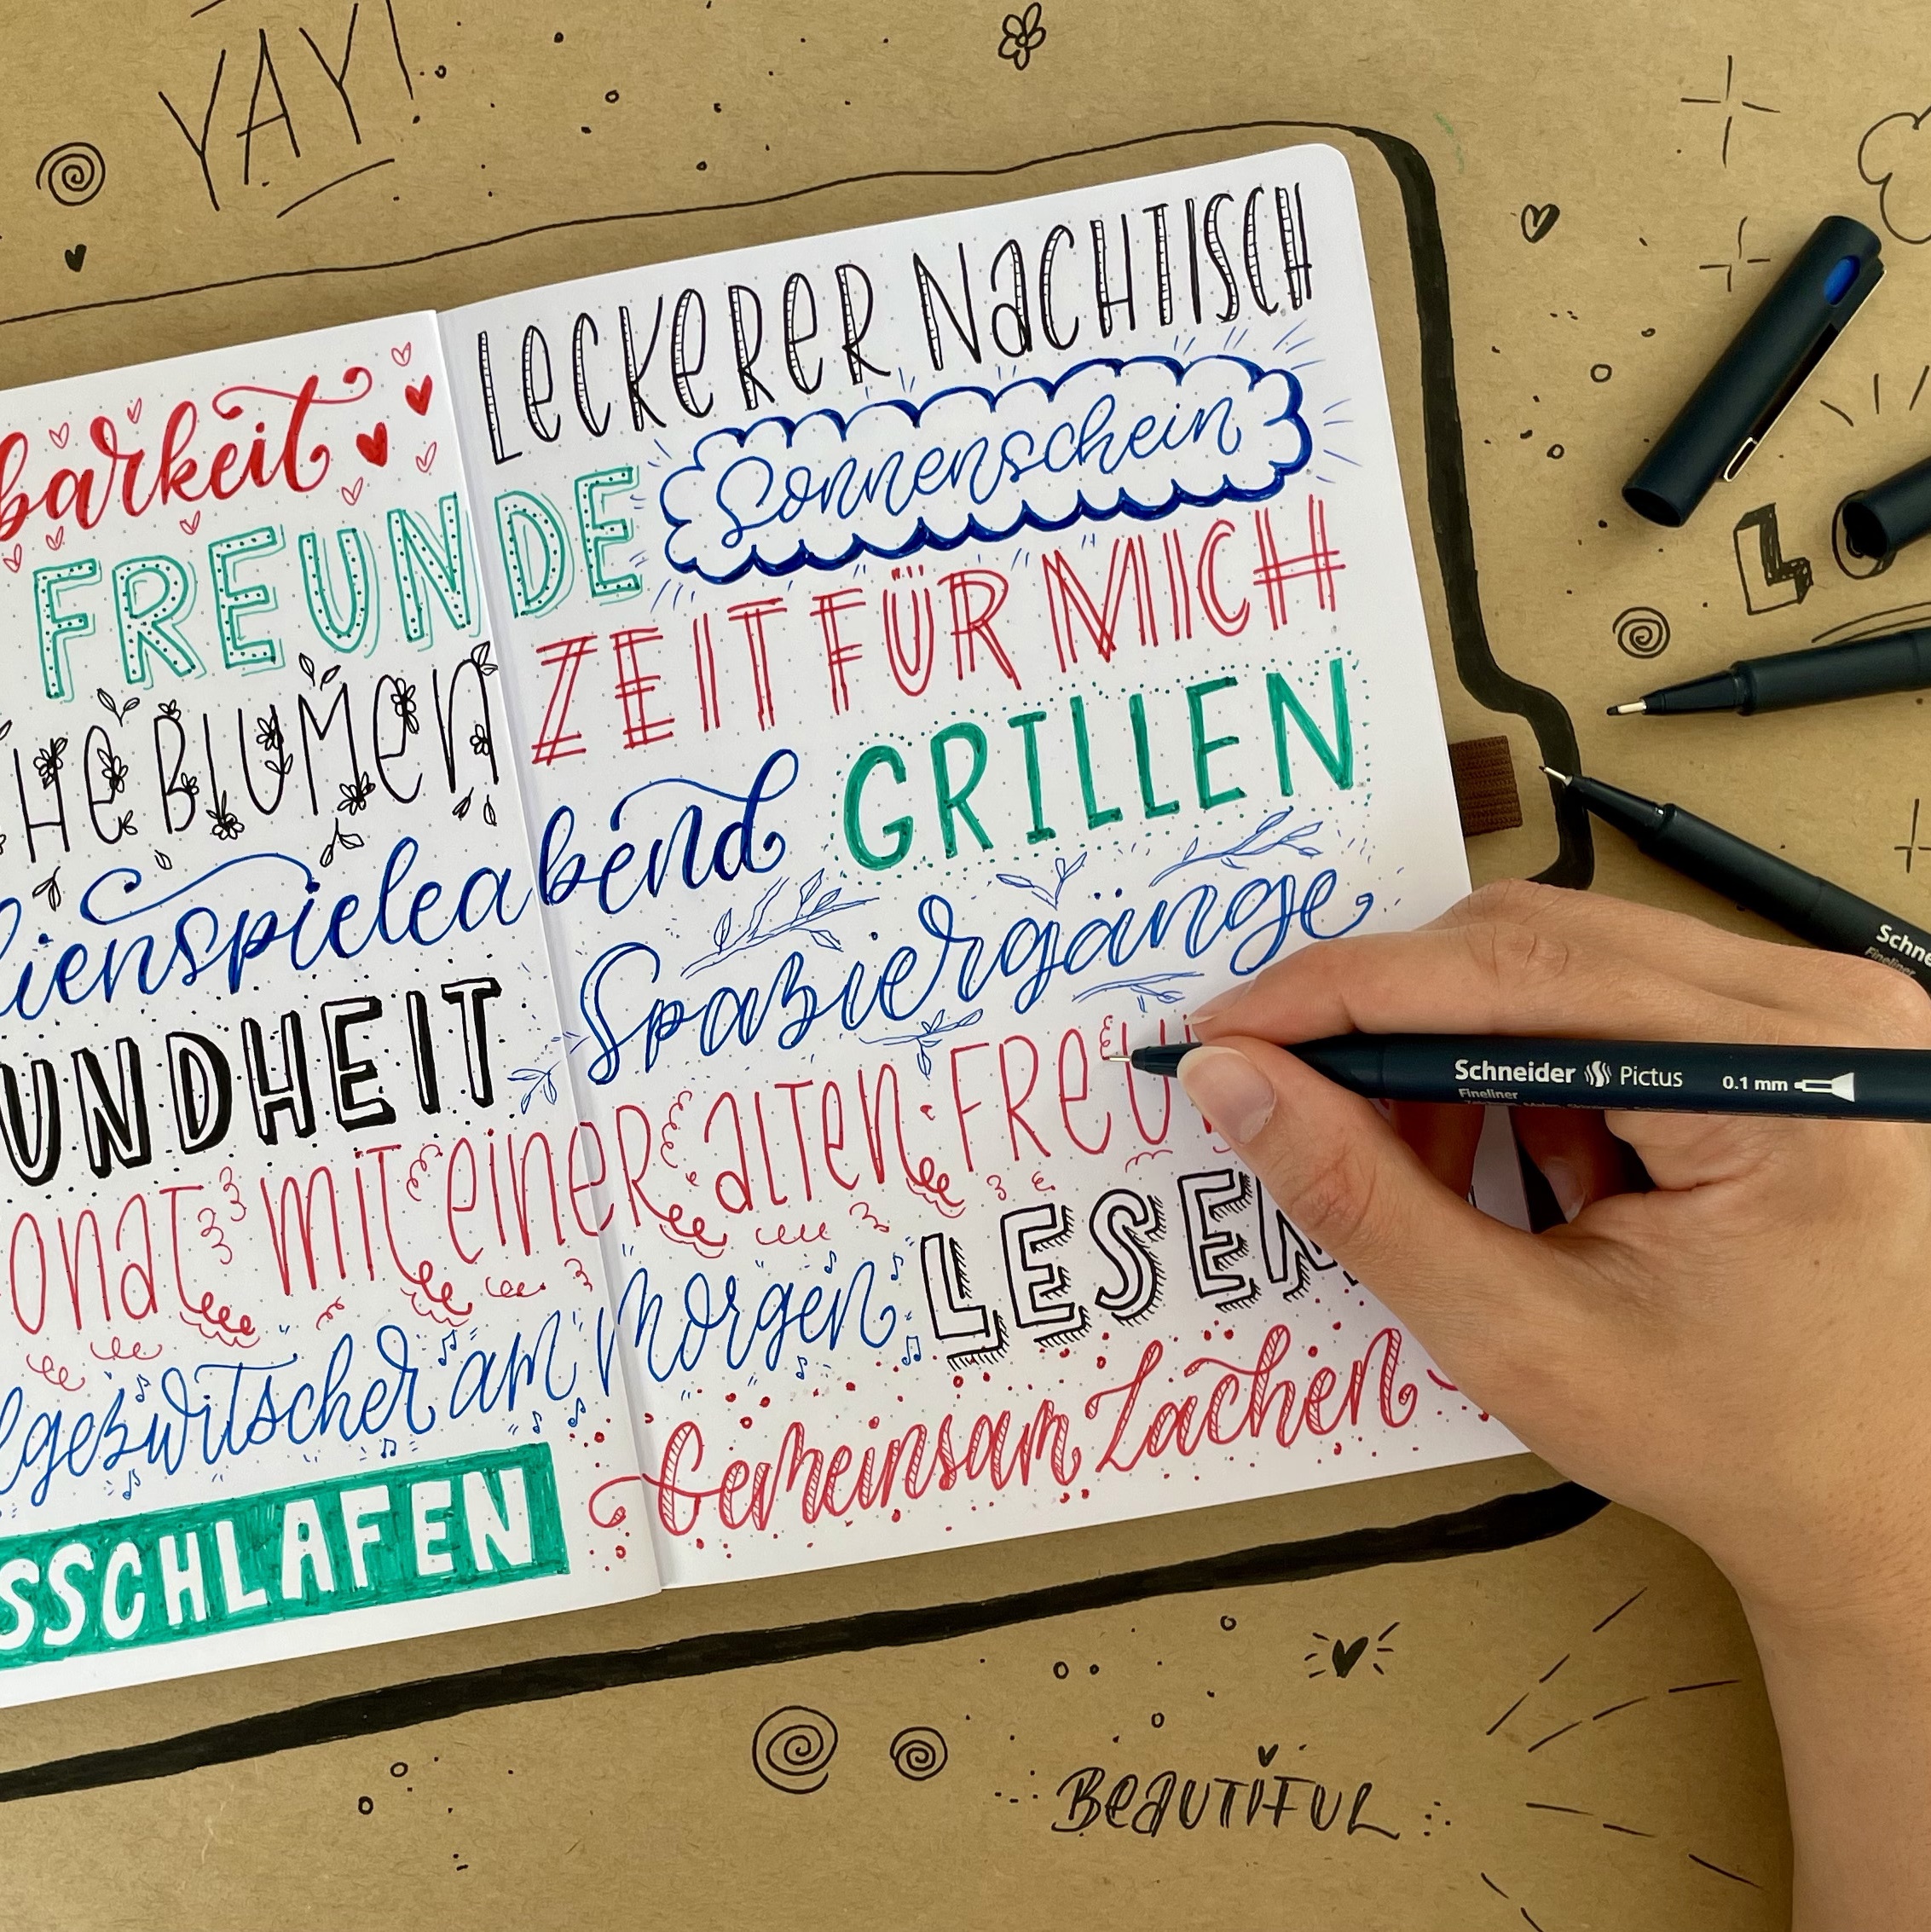 YAY!
LECKERER NACHTISCH
barkeit
Sonnenschein
FREUNDE
ZEIT FÜR MICH
HE BLUMEN
GRILLEN
lienspieleabend
Spaziergänge
UNDHEIT
ONAT MIT EINER ALTEN FREU
LESEN
lgezwitscher am Morgen
Gemeinsam Lachen
SSCHLAFEN
Schneider Pictus 0.1 mm
Fineliner
Schne
Fineliner
L
BEAUTIFUL